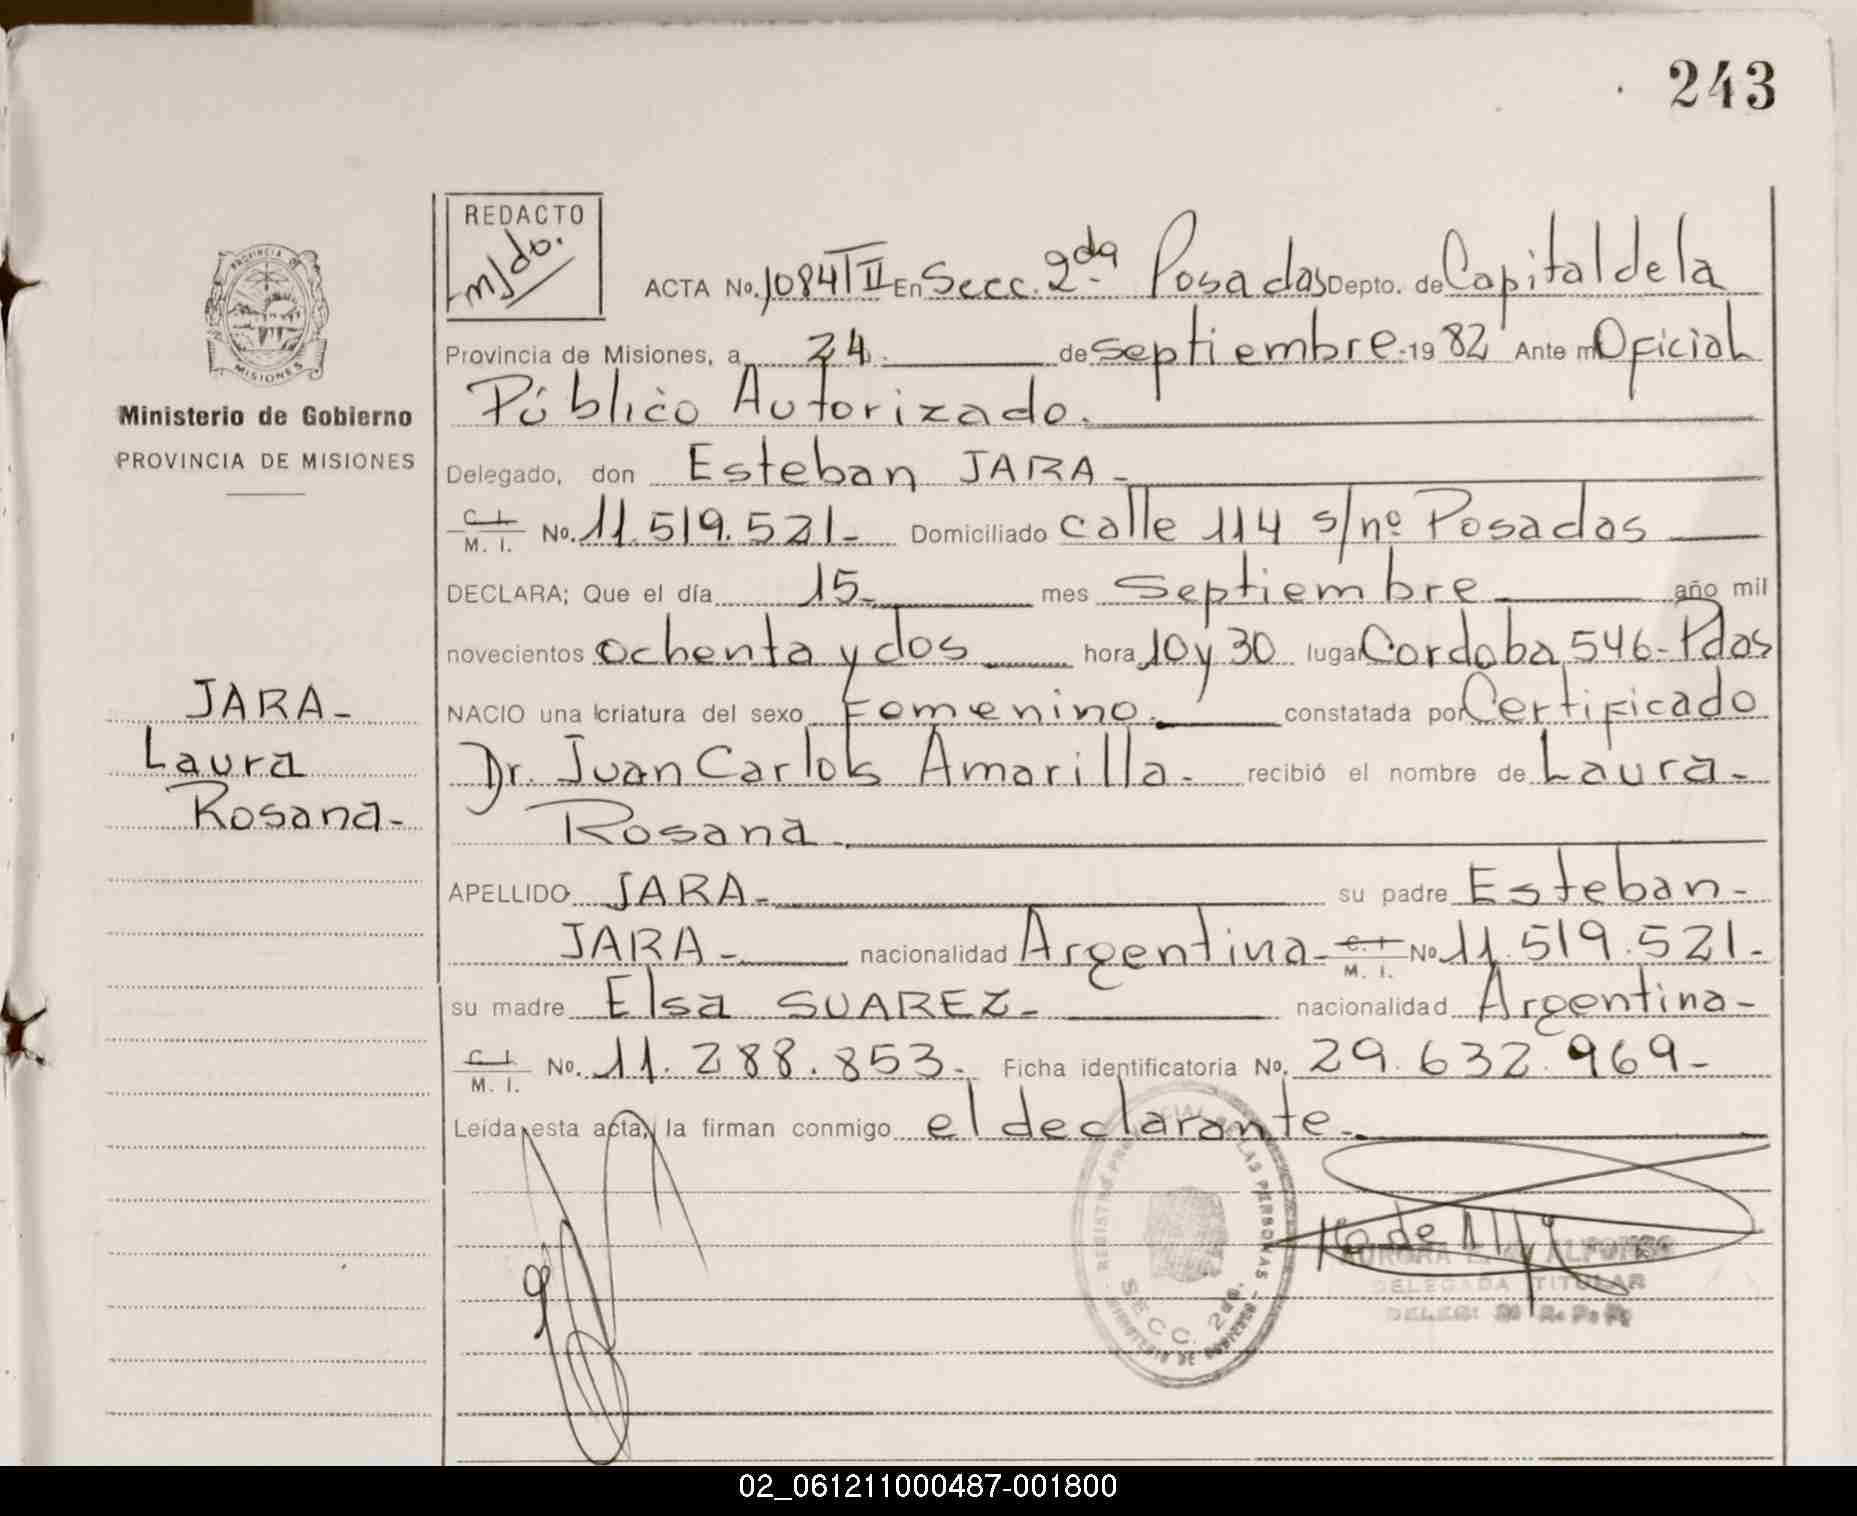 243
REDACTO
m/do.
PROVINCIA DE
MISIONES
Ministerio de Gobierno
PROVINCIA DE MISIONES
JARA-
Laura
Rosana-
ACTA No. 1084 TII En Secc. 2da Posadas Depto. de Capital de la
Provincia de Misiones, a 24. de septiembre-1982 Ante mi Oficial
Público Autorizado.
Delegado, don Esteban JARA-
C. I.
M. I. No. 11.519.521- Domiciliado calle 114 s/nº Posadas
DECLARA; Que el día 15- mes septiembre año mil
novecientos ochenta y dos hora 10 y 30 lugar Cordoba 546-Pdas
NACIO una criatura del sexo Femenino. constatada por Certificado
Dr. Juan Carlos Amarilla- recibió el nombre de Laura-
Rosana-
APELLIDO JARA- su padre Esteban-
JARA- nacionalidad Argentina- C. I. No 11.519.521-
M. I.
su madre Elsa SUAREZ- nacionalidad Argentina-
C. I.
M. I. No. 11.288.853- Ficha identificatoria No. 29.632.969-
Leída esta acta, la firman conmigo el declarante-
REGISTRO PROVINCIAL DE LAS PERSONAS
SECC. 2da.
MINISTERIO DE GOBIERNO
AURORA ALFONSO
DELEGADA TITULAR
02_061211000487-001800